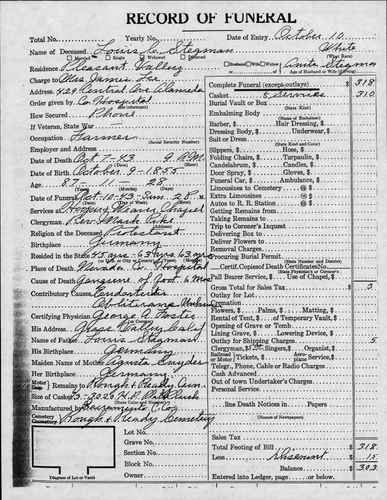 RECORD OF FUNERAL
Total No. Yearly No. Date of Entry October 10
Name of Deceased Louis C. Stegman White
Married Single Widowed Divorced (What Race)
Residence Pleasant Valley Husband Wife Widow of Anita Stegman
Charge to Mrs. James Lee Age of Husband or Wife (if living)
Address 424 Central Ave Alameda
Order given by Co Hospital
How Secured Phone
If Veteran, State War
Occupation Farmer
(Social Security Number)
Employer and Address
Date of Death Oct. 7-43 9 A.M.
Date of Birth October 9-1855
Age 87 - 11 - 28
Date of Funeral Oct-10-43
Services at Hooper & Weaver Chapel
Clergyman Rev.
Religion of the Deceased Protestant
Birthplace Germany
Resided in the State 45 ons
Place of Death Nevada Co. Hospital
Cause of Death Gangrene of foot 6 Mos
Contributory Causes Endarteritis
Obliterans
Certifying Physician George A. Foster
His Address Grass Valley Calif
Name of Father Louis Stegman
His Birthplace Germany
Maiden Name of Mother Snyder
Her Birthplace Germany
Remains to Rough & Ready Cem.
Size of Casket
(State Color and Number)
Manufactured by Sacramento C. Co
Cemetery Rough & Ready Cemetery
Lot No.
Grave No.
Section No.
Block No.
Owner
Diagram of Lot or Vault
Complete Funeral (except outlays) $ 318
Casket & Services 310
Burial Vault or Box
(State Kind)
Embalming Body
(Name of Embalmer)
Barber, $ Hair Dressing, $
Dressing Body, $ Underwear, $
Suit or Dress
(State Kind and Color)
Slippers, $ Hose, $
Folding Chairs, $ Tarpaulin, $
Candelabrum, $ Candles, $
Door Spray, $ Gloves, $
Funeral Car, $ Ambulance, $
Limousines to Cemetery @ $
Extra Limousines @ $
Autos to R. R. Station @ $
Getting Remains from
Taking Remains to
Trip to Coroner's Inquest
Delivering Box to
Deliver Flowers to
Removal Charges
(State Number and District)
Procuring Burial Permit
Certif. Copies of Death Certificate No.
(State Physician's or Coroner's)
Pall Bearer Service, $ Use of Chapel, $
Gross Total for Sales Tax $ 3
Outlay for Lot
Cremation
Flowers, $ Palms, $ Matting, $
Rental of Tent, $ of Temporary Vault, $
Opening of Grave or Tomb
Lining Grave, $ Lowering Device, $
Outlay for Shipping Charges 5
Clergyman, $ 5.00 Singers, $ Organist, $
Railroad Motor Tickets, $ Aero-plane Service, $
Telegr., Phone, Cable or Radio Charges
Cash Advanced
Out of town Undertaker's Charges
Personal Service
line Death Notices in Papers
(Names of Newspapers)
Sales Tax
Total Footing of Bill $ 318
Less Discount $ 15
Balance $ 303
Entered into Ledger, page or below.